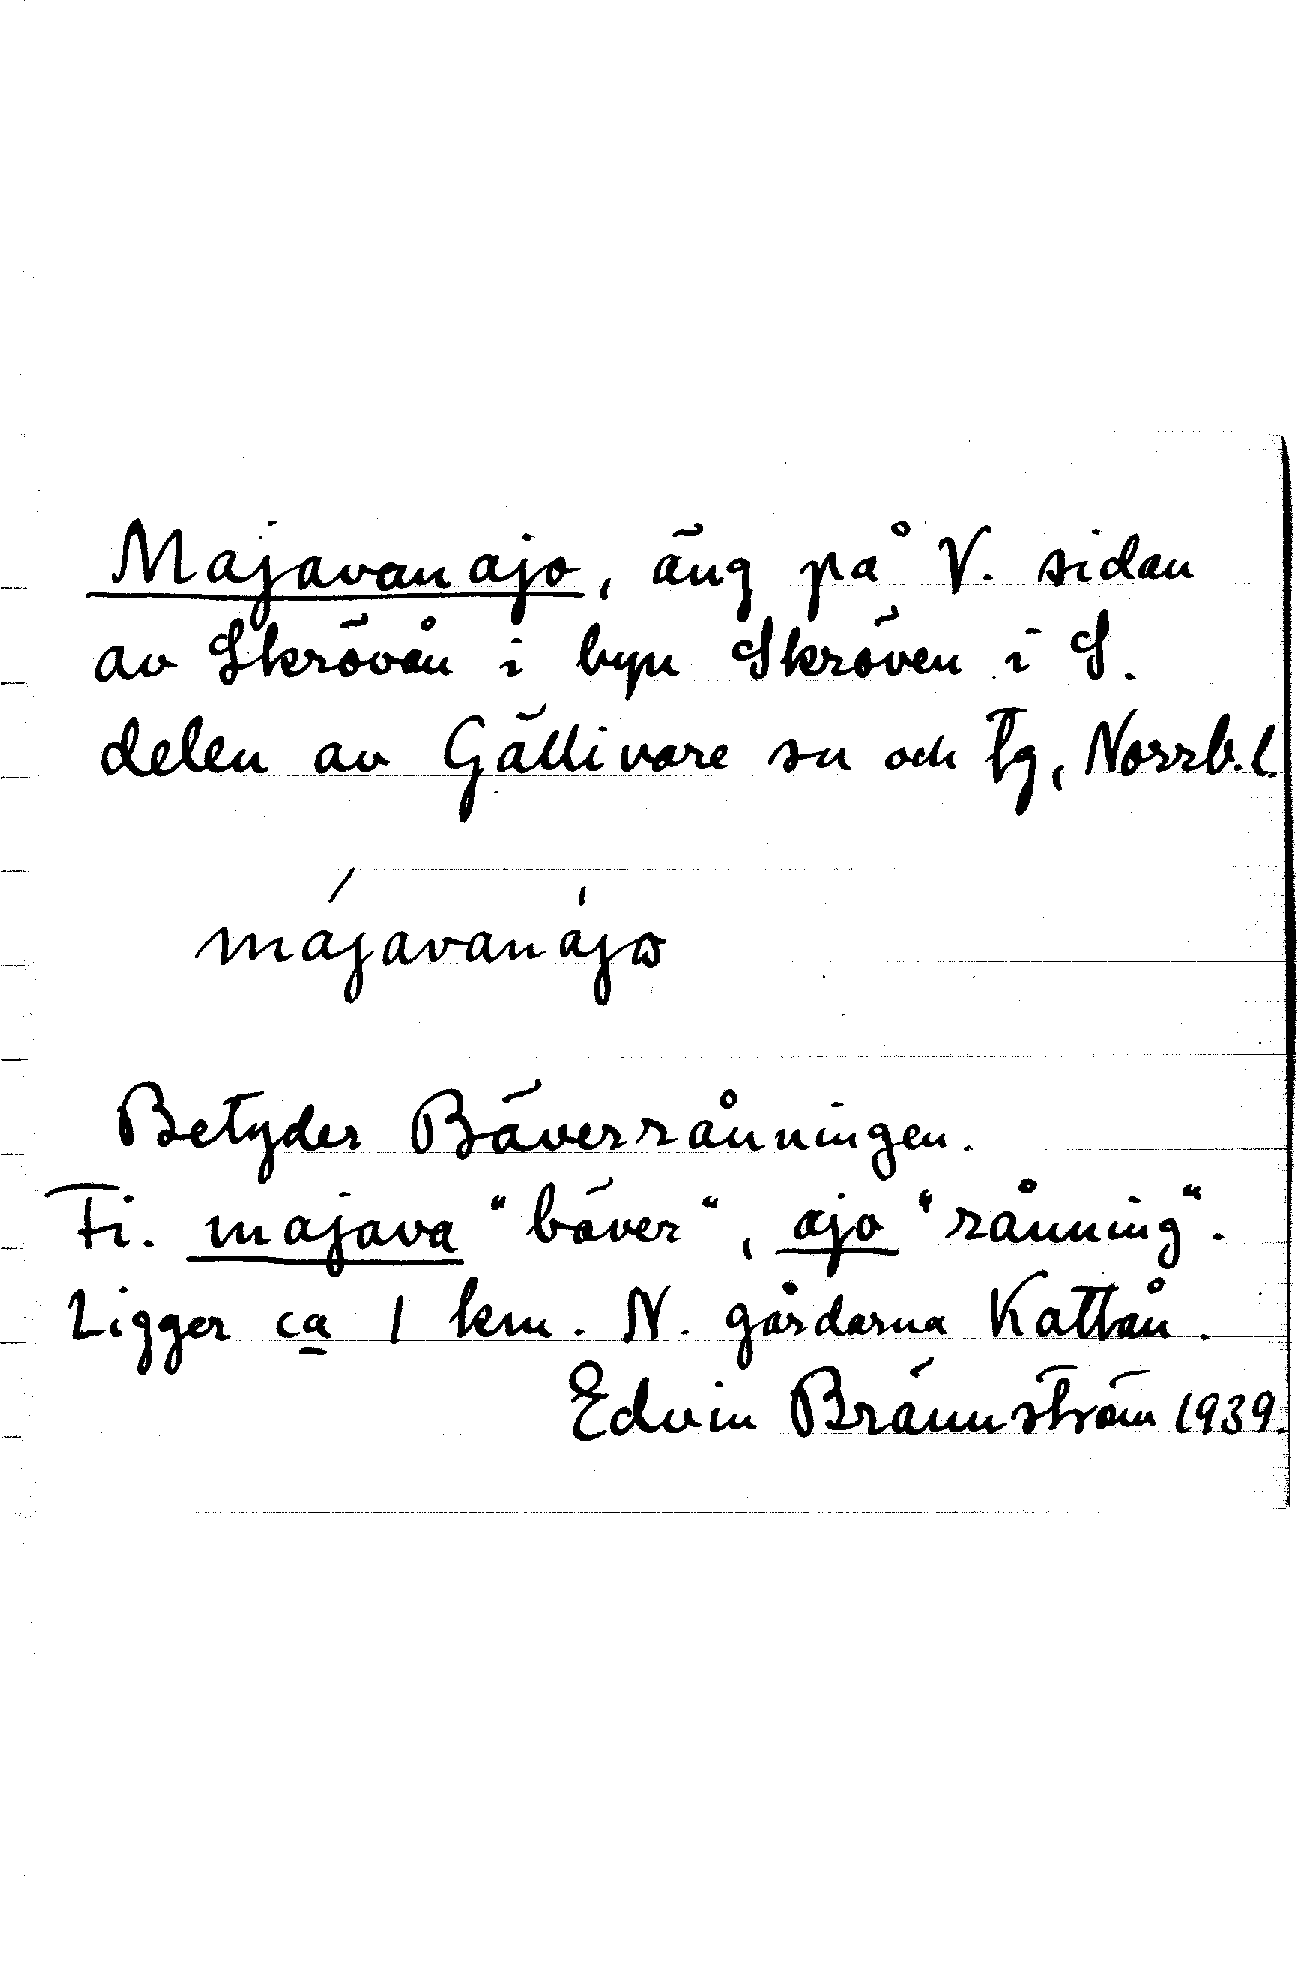 Majavanajo, äng på V. sidan
av Skrövån i byn Skröven i S.
delen av Gällivare sn och tg, Norrb.l.
májavanájo
Betyder Bäverrånningen.
Fi. majava "bäver", ajo "rånning".
Ligger ca 1 km. N. gårdarna Kattån.
Edvin Brännström 1939.